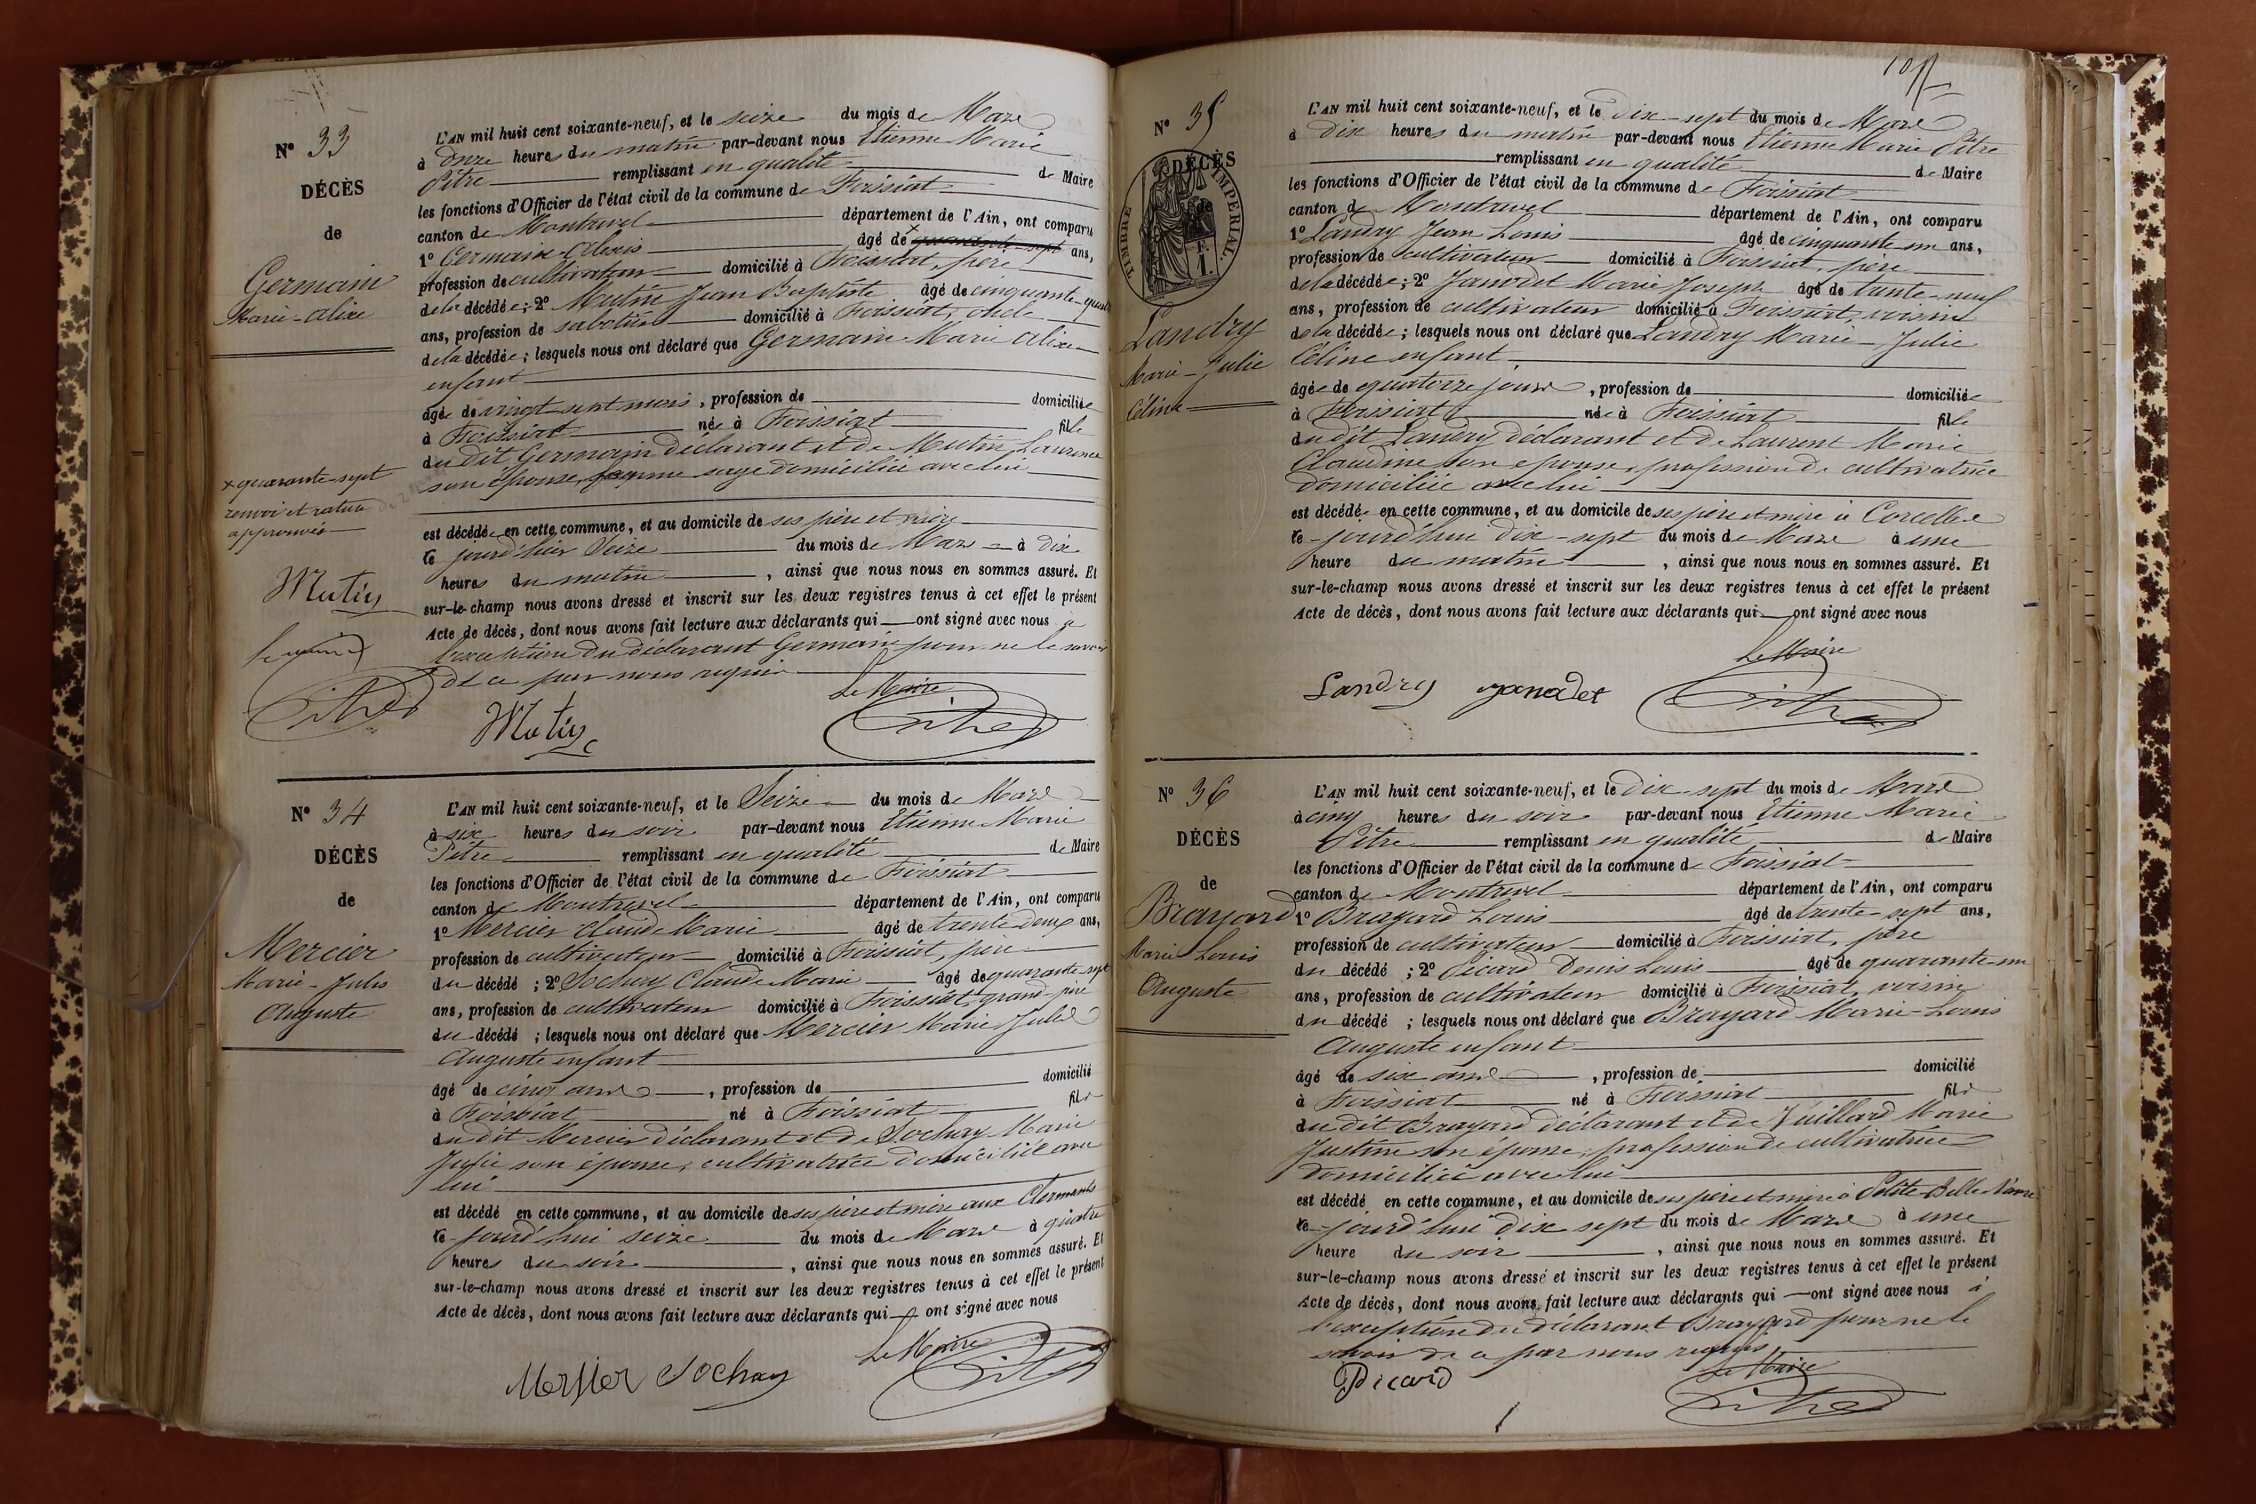 N° 33
DÉCÈS
de
Germain
Marie-Alixe
x quarante-sept
renvoi et rature
approuvés
Mutin
le maire
Pitre
L'AN mil huit cent soixante-neuf, et le seize du mois de Mars
à onze heures du matin par-devant nous Etienne Marie
Pitre remplissant en qualité de Maire
les fonctions d'Officier de l'état civil de la commune de Foissiat
canton de Montrevel département de l'Ain, ont comparu
1° Germain Alexis âgé de x quarante-sept ans,
profession de cultivateur domicilié à Foissiat, père
de la décédée; 2° Mutin Jean Baptiste âgé de cinquante-quatre
ans, profession de sabotier domicilié à Foissiat, oncle
de la décédée; lesquels nous ont déclaré que Germain Marie Alixe
enfant
âgée de vingt sept mois, profession de domiciliée
à Foissiat née à Foissiat fille
du dit Germain déclarant et de Mutin Laurence
son épouse, femme sage domiciliée avec lui
est décédée en cette commune, et au domicile de ses père et mère
ce jourd'hui Seize du mois de Mars à dix
heures du matin, ainsi que nous nous en sommes assuré. Et
sur-le-champ nous avons dressé et inscrit sur les deux registres tenus à cet effet le présent
Acte de décès, dont nous avons fait lecture aux déclarants qui ont signé avec nous à
l'exception du déclarant Germain pour ne le savoir
de ce par nous requis
Le Maire
Mutin Pitre
N° 34
DÉCÈS
de
Mercier
Marie-Jules
Auguste
L'AN mil huit cent soixante-neuf, et le Seize du mois de Mars
à six heures du soir par-devant nous Etienne Marie
Pitre remplissant en qualité de Maire
les fonctions d'Officier de l'état civil de la commune de Foissiat
canton de Montrevel département de l'Ain, ont comparu
1° Mercier Claude Marie âgé de trente deux ans,
profession de cultivateur domicilié à Foissiat, père
du décédé; 2° Sochay Claude Marie âgé de quarante-sept
ans, profession de cultivateur domicilié à Foissiat, grand-père
du décédé; lesquels nous ont déclaré que Mercier Marie Jules
Auguste enfant
âgé de cinq ans, profession de domicilié
à Foissiat né à Foissiat fils
du dit Mercier déclarant et de Sochay Marie
Julie son épouse, cultivatrice domiciliée avec
lui
est décédé en cette commune, et au domicile de ses père et mère aux Clermonts
ce jourd'hui seize du mois de Mars à quatre
heures du soir, ainsi que nous nous en sommes assuré. Et
sur-le-champ nous avons dressé et inscrit sur les deux registres tenus à cet effet le présent
Acte de décès, dont nous avons fait lecture aux déclarants qui ont signé avec nous
Le Maire
Mersier Sochay Pitre
N° 35
DÉCÈS
de
TIMBRE IMPÉRIAL
Landry
Marie-Julie
Céline
L'AN mil huit cent soixante-neuf, et le dix-sept du mois de Mars
à dix heures du matin par-devant nous Etienne Marie Pitre
remplissant en qualité de Maire
les fonctions d'Officier de l'état civil de la commune de Foissiat
canton de Montrevel département de l'Ain, ont comparu
1° Landry Jean Louis âgé de cinquante-un ans,
profession de cultivateur domicilié à Foissiat, père
de la décédée; 2° Janodet Marie Joseph âgé de trente-neuf
ans, profession de cultivateur domicilié à Foissiat, voisin
de la décédée; lesquels nous ont déclaré que Landry Marie-Julie
Céline enfant
âgée de quatorze jours, profession de domiciliée
à Foissiat née à Foissiat fille
du dit Landry déclarant et de Laurent Marie
Claudine son épouse, profession de cultivatrice
domiciliée avec lui
est décédée en cette commune, et au domicile de ses père et mère à Corcelles
ce jourd'hui dix-sept du mois de Mars à une
heure du matin, ainsi que nous nous en sommes assuré. Et
sur-le-champ nous avons dressé et inscrit sur les deux registres tenus à cet effet le présent
Acte de décès, dont nous avons fait lecture aux déclarants qui ont signé avec nous
Le Maire
Landry Janodet Pitre
N° 36
DÉCÈS
de
Brayard
Marie Louis
Auguste
L'AN mil huit cent soixante-neuf, et le dix-sept du mois de Mars
à cinq heures du soir par-devant nous Etienne Marie
Pitre remplissant en qualité de Maire
les fonctions d'Officier de l'état civil de la commune de Foissiat
canton de Montrevel département de l'Ain, ont comparu
1° Brayard Louis âgé de trente-sept ans,
profession de cultivateur domicilié à Foissiat, père
du décédé; 2° Picard Denis Louis âgé de quarante-un
ans, profession de cultivateur domicilié à Foissiat, voisin
du décédé; lesquels nous ont déclaré que Brayard Marie-Louis
Auguste enfant
âgé de six ans, profession de domicilié
à Foissiat né à Foissiat fils
du dit Brayard déclarant et de Vuillard Marie
Justine son épouse, profession de cultivatrice
domiciliée avec lui
est décédé en cette commune, et au domicile de ses père et mère à Petite Belle
ce jourd'hui dix sept du mois de Mars à une
heure du soir, ainsi que nous nous en sommes assuré. Et
sur-le-champ nous avons dressé et inscrit sur les deux registres tenus à cet effet le présent
Acte de décès, dont nous avons fait lecture aux déclarants qui ont signé avec nous à
l'exception du déclarant Brayard pour ne le
savoir de ce par nous requis
Le Maire
Picard Pitre